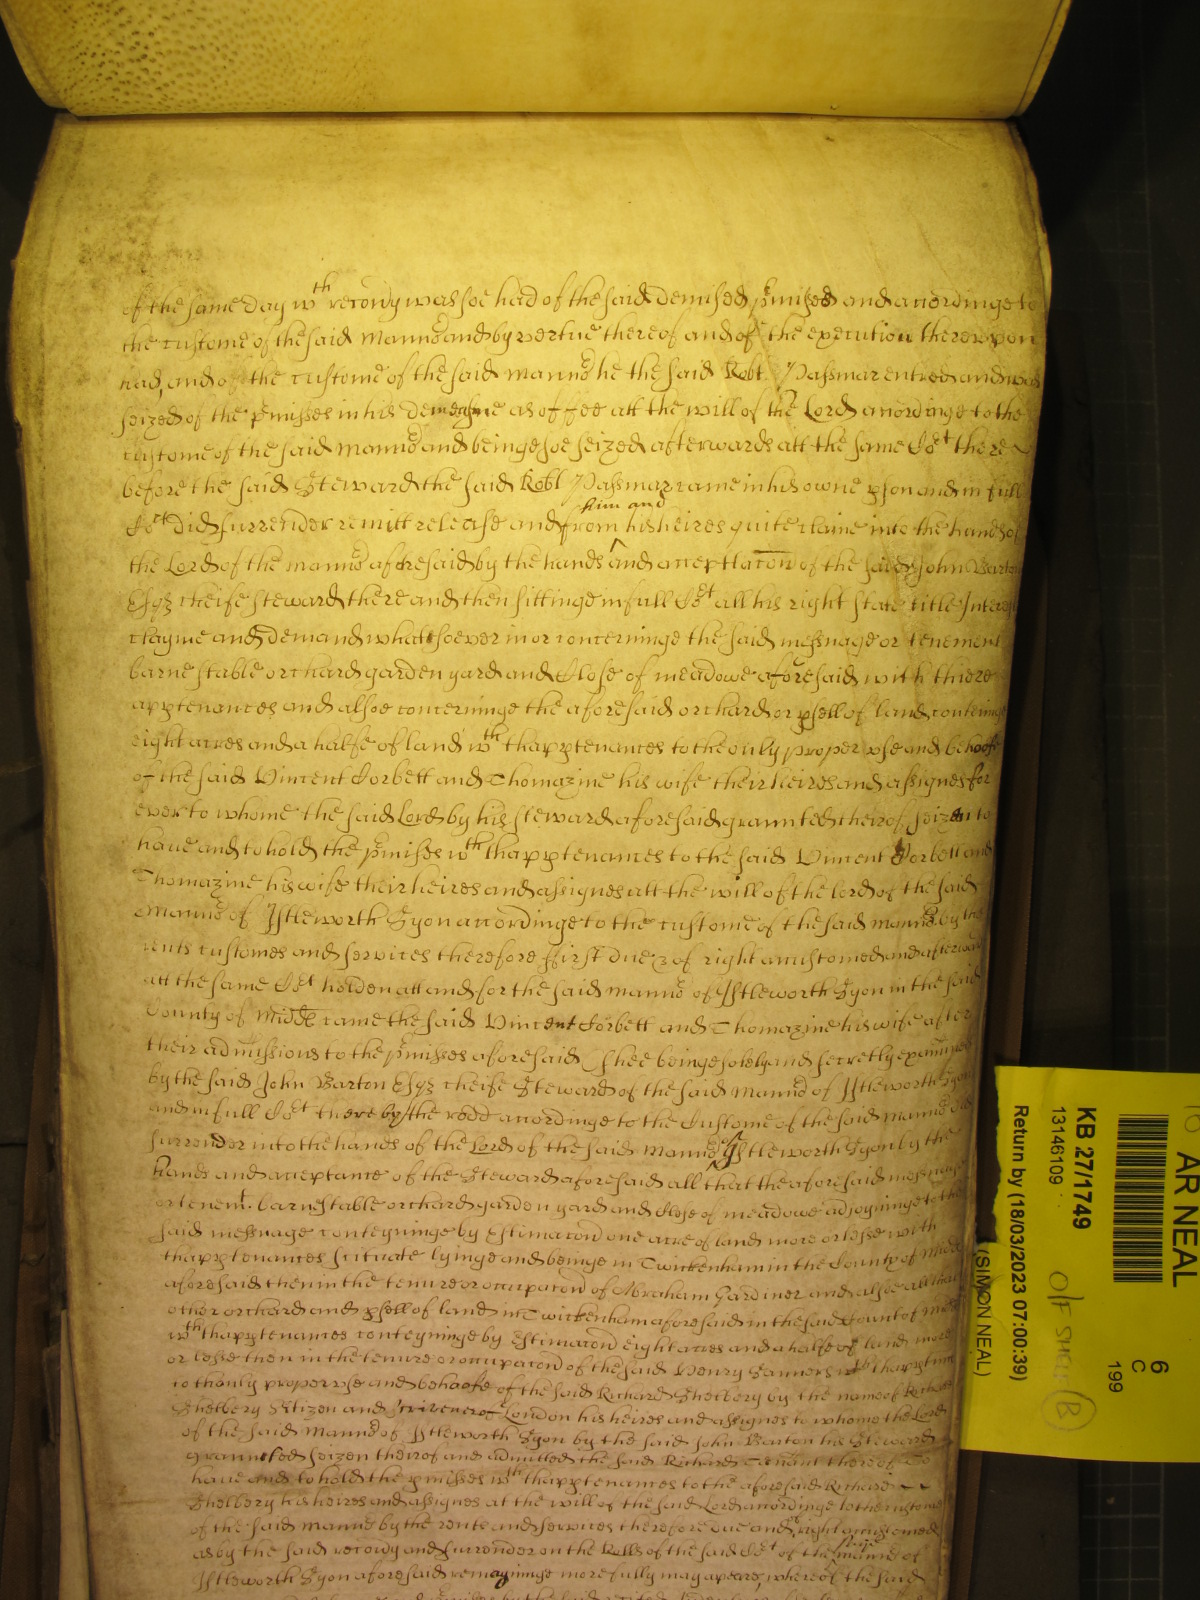 of the same day wth recovy was soe had of the said demised pmisses and accordinge to
the custome of the said Mannor and by vertue thereof and of the execution thereupon
had, and of the custome of the said mannor he the said Robt Passmar entred and was
seized of the pmisses in his demeasne as of fee att the will of the Lord accordinge to the
custome of the said mannor and beinge soe seized afterwards att the same Cort there
before the said Steward the said Robt Passmar came in his owne pson and in full
Cort did surrender remitt release and from him and his heires quite claime into the hands of
the Lord of the mannor aforesaid by the hands and acceptacon of the said John Barton
Esqz cheife steward there and then sittinge in full Cort all his right state title Interest
clayme and demand whatsoever in or concerninge the said messuage or tenement
barne stable orchard garden yard and Close of meadowe aforesaid with there
apptenances and alsoe concerninge the aforesaid orchard or psell of land conteninge
eight acres and a halfe of land wth thapptenances to the only proper vse and behoofe
of the said Vincent Corbett and Thomazine his wife their heires and assignes for
ever to whome the said Lord by his steward aforesaid graunted theirof seizen to
haue and to hold the pmisses wth thapptenances to the said Vincent Corbett and
Thomazine his wife their heires and assignes att the will of the lord of the said
Mannor of Istleworth Syon accordinge to the custome of the said mannor by the
rents customes and services therefore first due & of right accustomed and afterwards
att the same Cort holden att and for the said mannor of Istleworth Syon in the said
County of Midd came the said Vincent Corbett and Thomazine his wife after
their admissions to the pmisses aforesaid (shee beinge solely and secretly examined
by the said John Barton Esqz cheife Steward of the said Mannor of Istleworth Syon
and in full Cort there by the rodd accordinge to the Custome of the said mannor did
surrender into the hands of the Lord of the said Mannor of Istleworth Syon by the
hands and acceptance of the Steward aforesaid all that the aforesaid messuage
or tenemt. barne stable orchard garden yard and close of meadowe adjoyninge to the
said messuage conteyninge by Estimacon one acre of land more or lesse with
thapptenances scituate lyinge and beinge in Twickenham in the County of Midd
aforesaid then in the tenure or occupacon of Abraham Gardiner and alsoe all that
other orchard and psell of land in Twickenham aforesaid in the said County of Midd
wth thapptenances conteyninge by Estimacon eight acres and a halfe of land more
or lesse then in the tenure or occupacon of the said Henry Sanners wth thapptennces
to thonly proper vse and behoofe of the said Richard Shelbery by the name of Richard
Shelbery Citizen and Scrivener of London his heires and assignes to whome the Lord
of the said Mannor of Istleworth Syon by the said John Barton his Steward
graunted seizen theirof and admitted the said Richard Tenant thereof To
haue and to hold the pmisses wth thapptenances to the aforesaid Richard
Shelbery his heires and assignes at the will of the said Lord accordinge to the custome
of the said Mannor by the rents and services therefore due and of right accustomed
as by the said recovy and surrender on the Rolls of the said Cort of the said mannor of
Istleworth Syon aforesaid remayninge more fully may apeare, whereof the said
AR NEAL
KB 27/1749
13146109
Return by (18/03/2023 07:00:39)
(SIMON NEAL)
6
C
199
O/F SHELF B